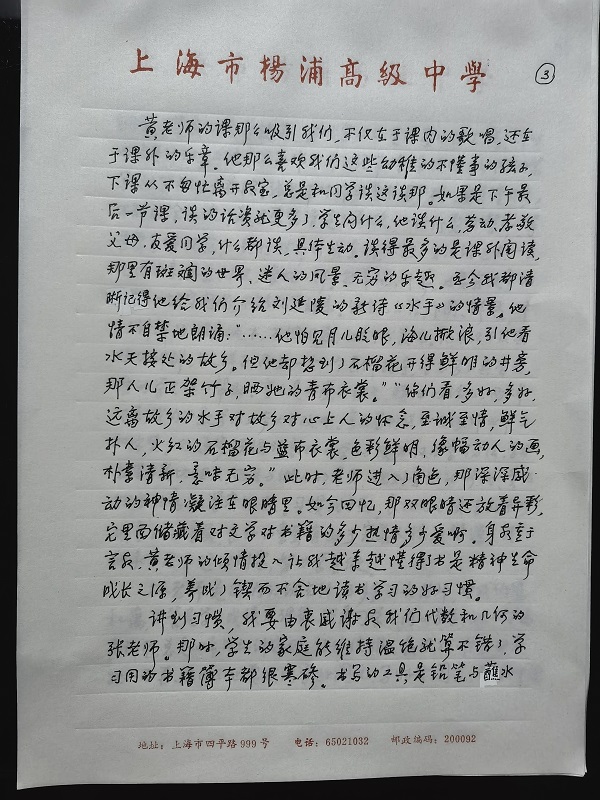 上海市楊浦高級中學
3
黄老师的课那么吸引我们，不仅在于课内的歌唱，还在
于课外的乐章。他那么喜欢我们这些幼稚的不懂事的孩子，
下课从不匆忙离开教室，总是和同学谈这谈那。如果是下午最
后一节课，谈的话资就更多了，学生问什么，他谈什么，劳动、孝敬
父母、友爱同学，什么都谈，具体生动。谈得最多的是课外阅读，
那里有斑斓的世界、迷人的风景、无穷的乐趣。至今我都清
晰记得他给我们介绍刘延陵的新诗《水手》的情景。他
情不自禁地朗诵：“……他怕见月儿眨眼，海儿掀浪，引他看
水天接处的故乡。但他却想到了石榴花开得鲜明的井旁，
那人儿正架竹子，晒她的青布衣裳。”“你们看，多好，多好，
远离故乡的水手对故乡对心上人的怀念，至诚至情，鲜气
扑人，火红的石榴花与蓝布衣裳，色彩鲜明，像幅动人的画，
朴素清新，意味无穷。”此时，老师进入了角色，那深深感
动的神情凝注在眼睛里。如今回忆，那双眼睛还放着异彩，
它里面储藏着对文学对书籍的多少热情多少爱啊。身教重于
言教，黄老师的倾情投入让我越来越懂得了书是精神生命
成长之源，养成了锲而不舍地读书、学习的好习惯。
讲到习惯，我要由衷感谢教我们代数和几何的
张老师。那时，学生的家庭能维持温饱就算不错了，学
习用的书籍簿本都很寒碜。书写的工具是铅笔与蘸水
地址：上海市四平路999号 电话：65021032 邮政编码：200092